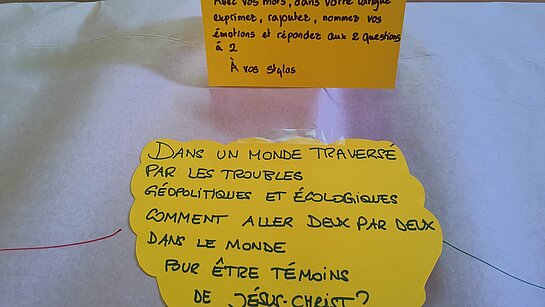 Avec vos mots, dans votre langue
exprimez, rajoutez, nommez vos
émotions et répondez aux 2 questions
à 2
À vos stylos
DANS UN MONDE TRAVERSÉ
PAR LES TROUBLES
GÉOPOLITIQUES ET ÉCOLOGIQUES
COMMENT ALLER DEUX PAR DEUX
DANS LE MONDE
POUR ÊTRE TÉMOINS
DE JÉSUS-CHRIST ?